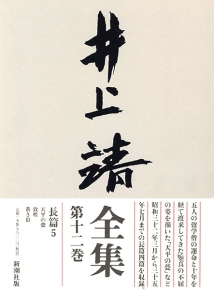 井上靖
五人の留学僧の運命と十年を
経て渡来してきた鑑真の不屈
の姿を描いた、「天平の甍」など
昭和三十二年三月から三十五
年七月までの長篇四篇を収録。
全集
第十二巻
長篇5
天平の甍
敦煌
蒼き狼
新潮社版